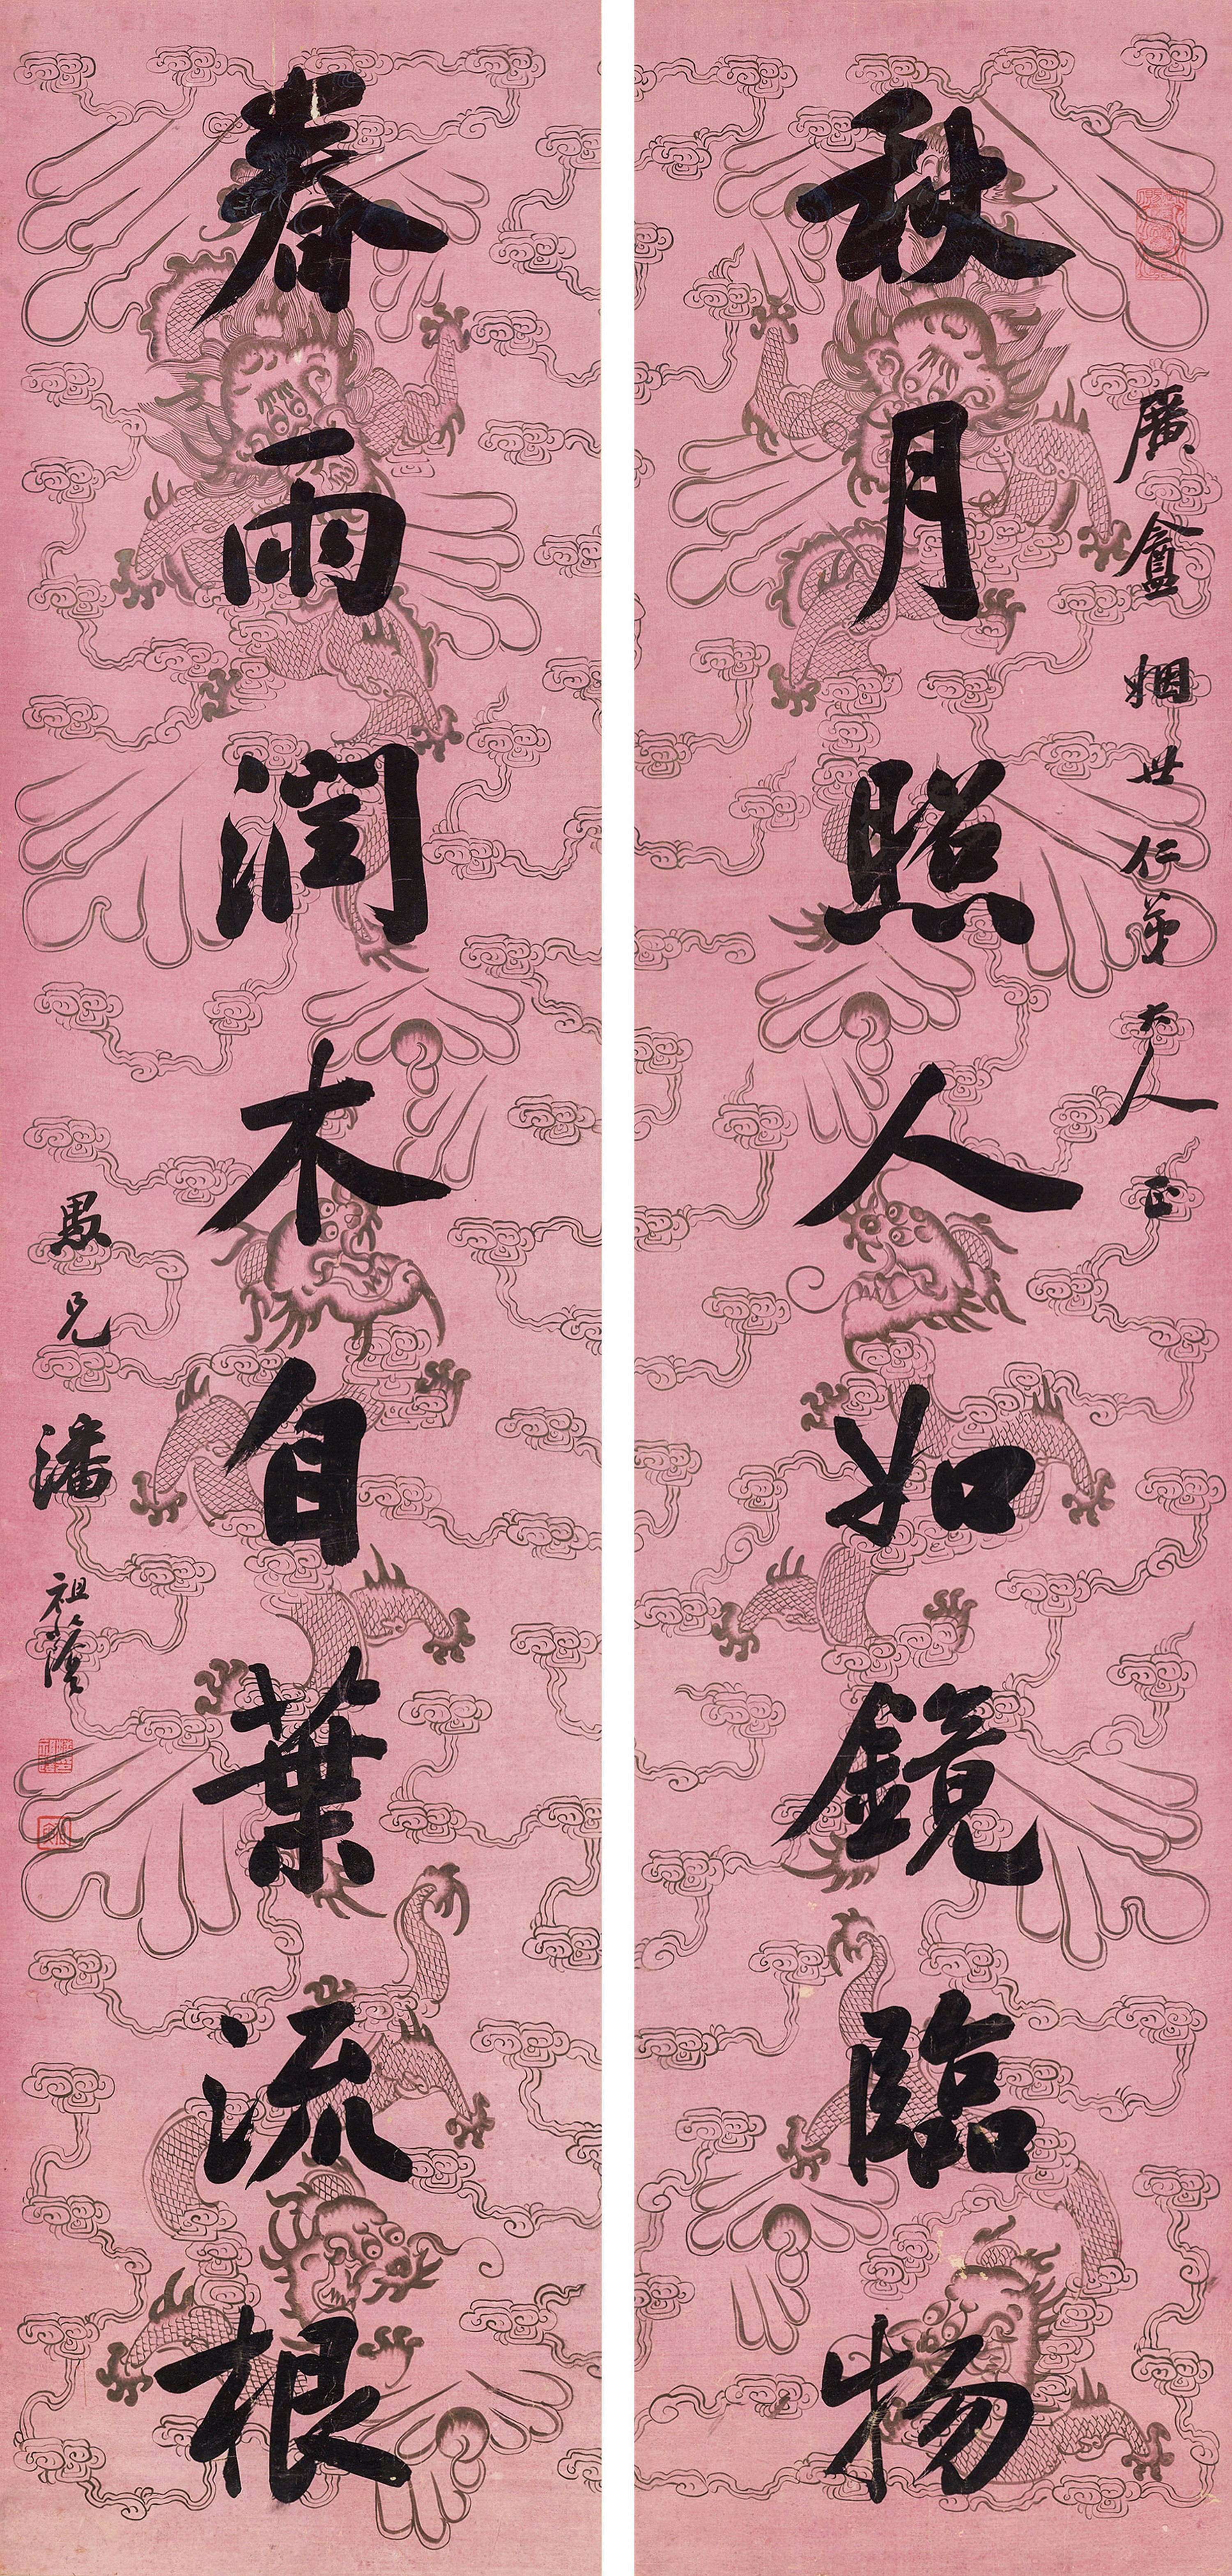 秋月照人如鏡臨物
廣盦姻世仁弟大人正
春雨潤木自葉流根
愚兄潘祖蔭